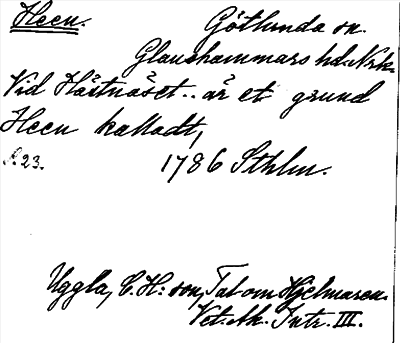 Heen.
Götlunda sn.
Glanshammars hd. Nrk.
Vid Hästnäset.. är et grund
Heen kalladt,
s. 23. 1786 Sthlm.
Uggla, C. H:son, Tal om Hjelmaren.
Vet. Ak. Intr. III.